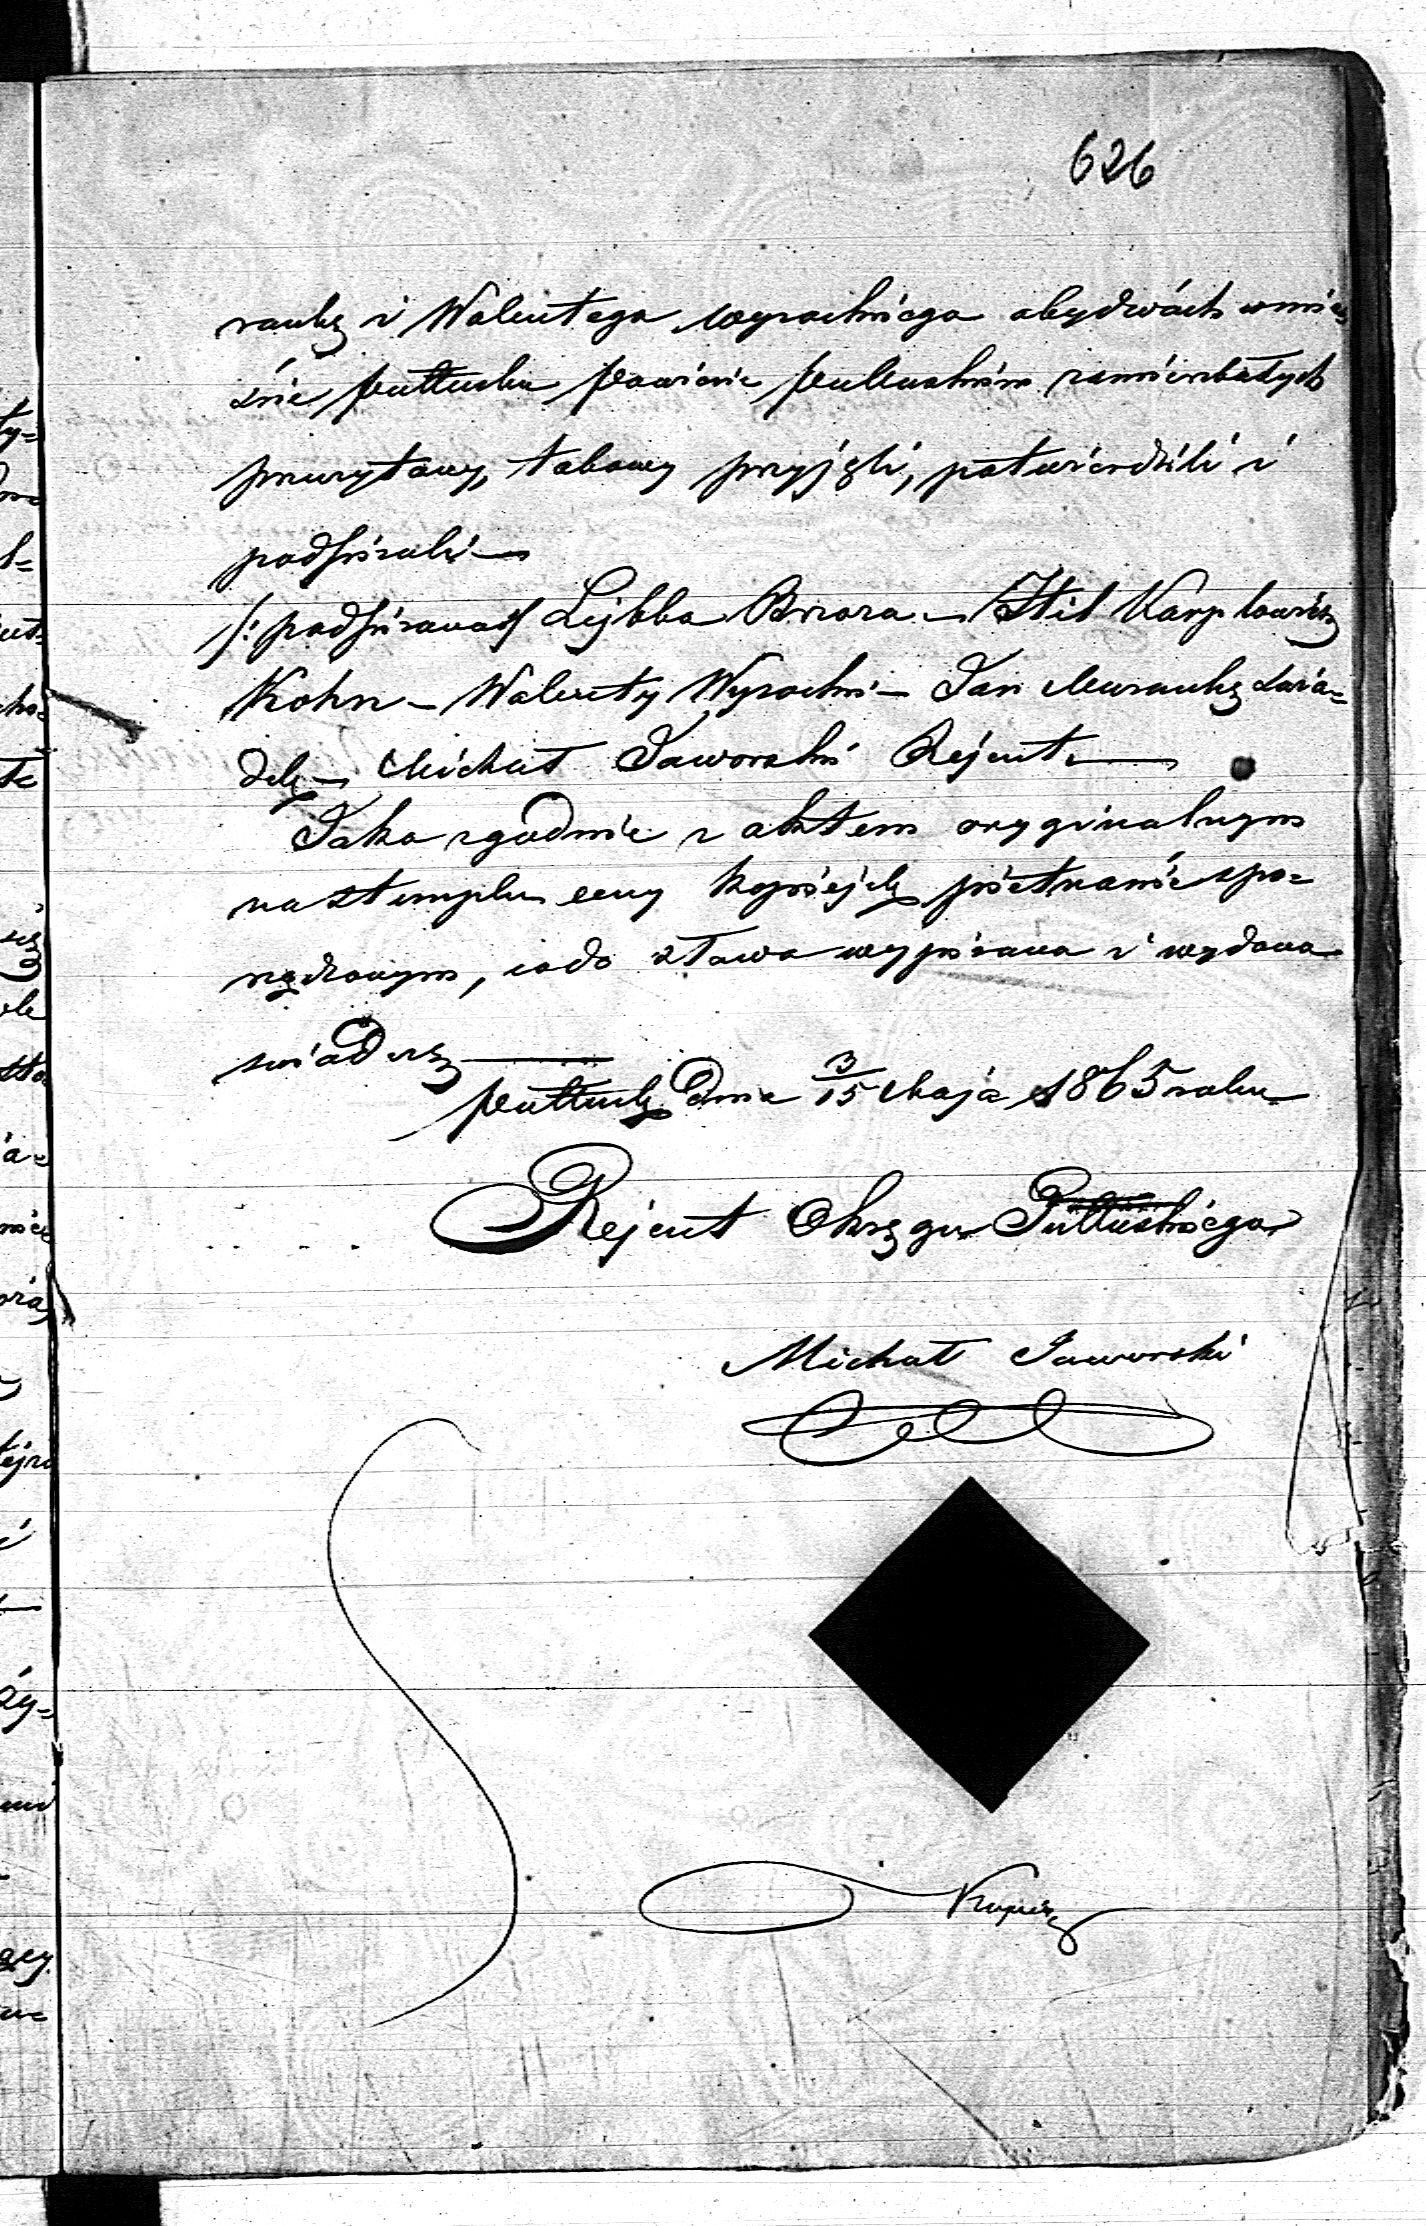 626
rauka i Walentego Wysockiego obydwóch w mie
ście Pułtusku Powiecie Pułtuskim zamieszkałych
przeczytany, takowy przyjęli, potwierdzili i
podpisali —
/: podpisano :/ Lejbka Brzoza — Itil Karpłowicz
Kohn — Walenty Wysocki — Jan Murauka świa=
dek — Michał Jaworski Rejent —
Jako zgodnie z aktem oryginalnym
na stemplu ceny kopiejek piętnaście spo=
rządzonym, co do słowa wypisana i wydana
świadczę —
Pułtusk dnia 3/15 Maja 1865 roku
Rejent Okręgu Pułtuskiego
Michał Jaworski